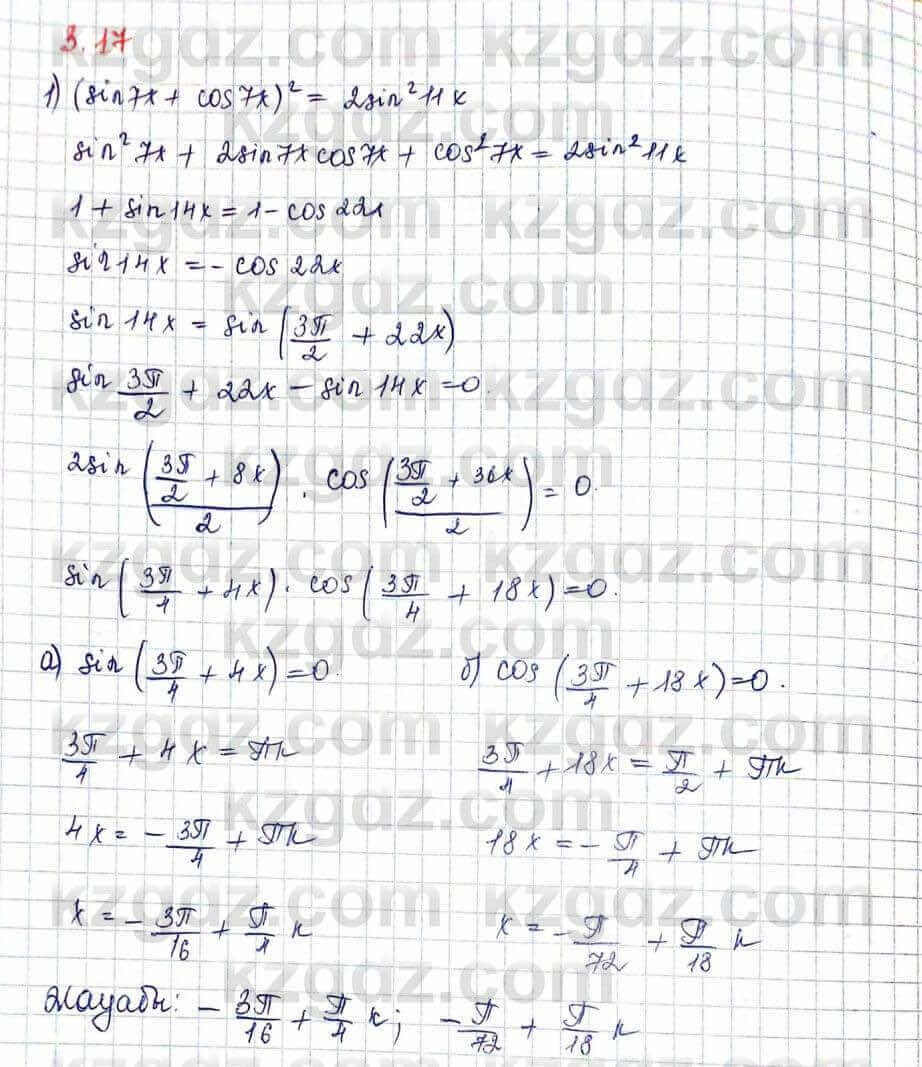 3.17
1) (sin7x + cos7x)² = 2sin²11x
sin²7x + 2sin7x cos7x + cos²7x = 2sin²11x
1 + sin14x = 1 - cos22x
sin14x = - cos22x
sin14x = sin(3π/2 + 22x)
sin 3π/2 + 22x - sin14x = 0.
2sin((3π/2 + 8x)/2) · cos((3π/2 + 36x)/2) = 0.
sin(3π/4 + 4x) · cos(3π/4 + 18x) = 0.
а) sin(3π/4 + 4x) = 0. б) cos(3π/4 + 18x) = 0.
3π/4 + 4x = πк 3π/4 + 18x = π/2 + πк
4x = - 3π/4 + πк 18x = - π/4 + πк
x = - 3π/16 + π/4 к x = - π/72 + π/18 к
Жауабы: - 3π/16 + π/4 к; - π/72 + π/18 к
kzgdz.com